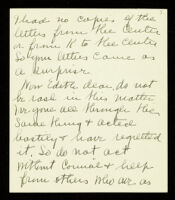 I had no copies of the
letters from Kee Center
or from K to Kee Center
So your letters came as
a surprise.
Now Edith, dear, do not
be rash in this matter
I've gone all through this
Same thing & acted
hastily & have regretted
it. So do not act
without Counsel & help
from others who are as